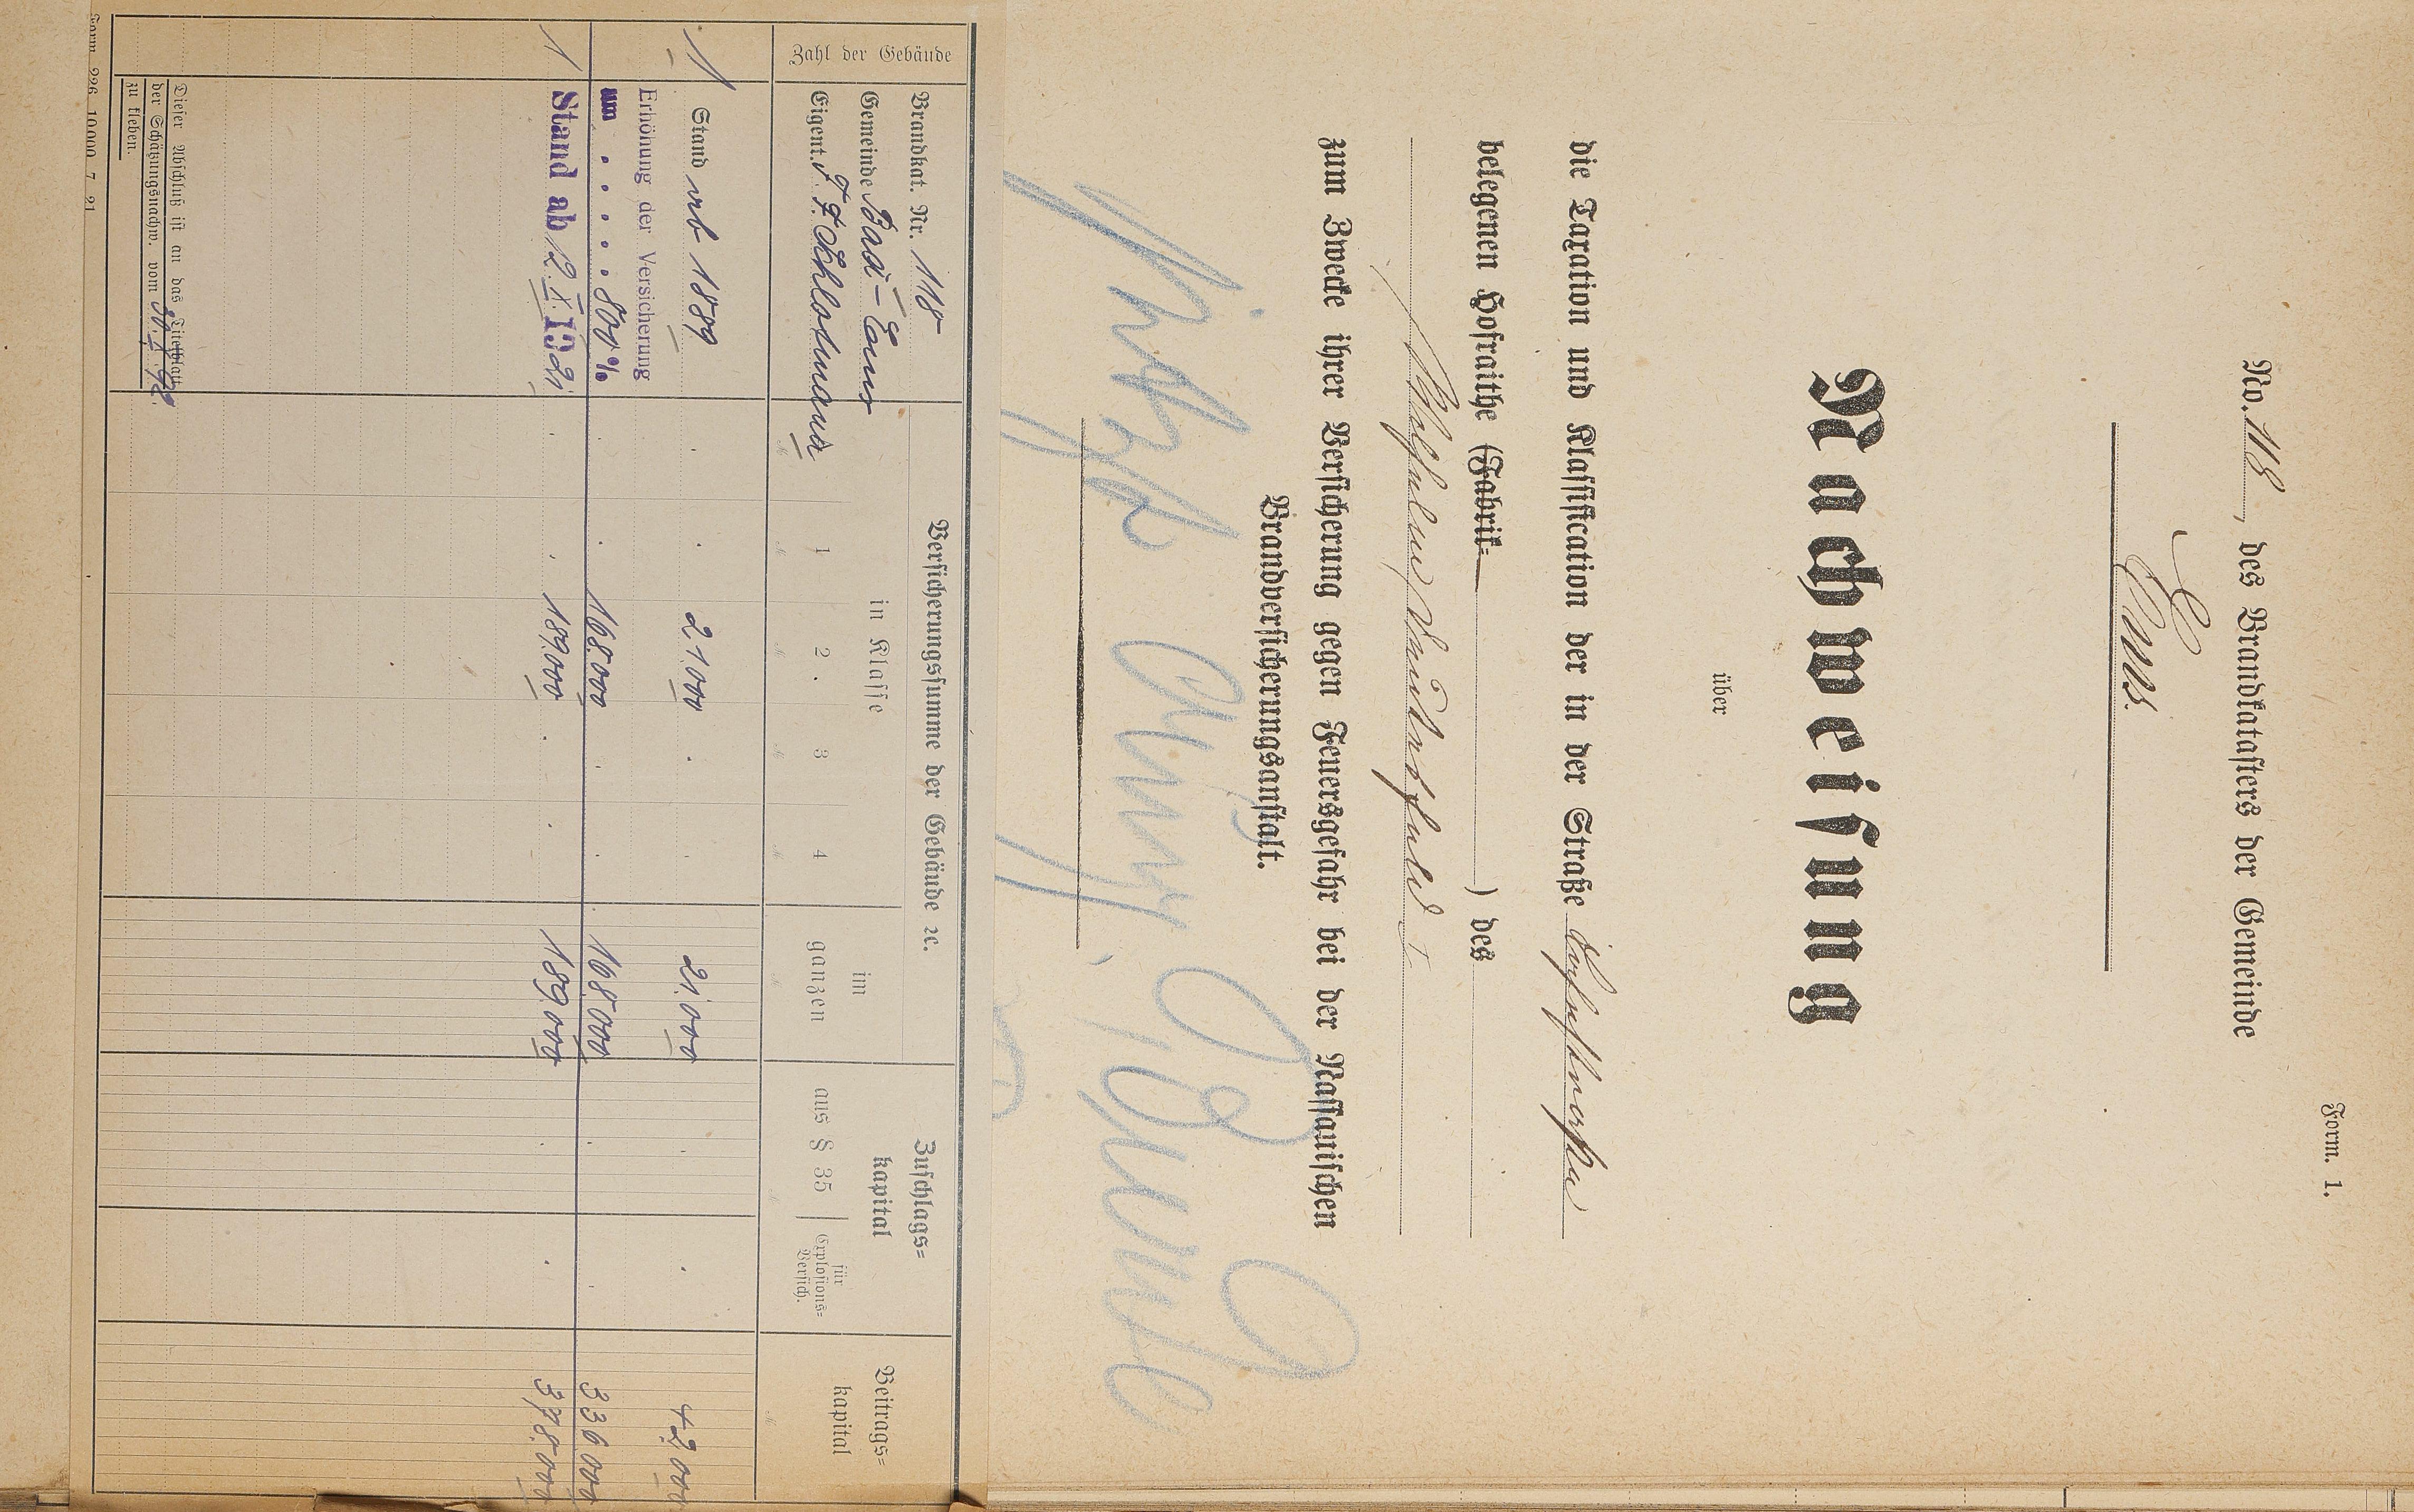 Form. 1.
No. 118, des Brandkatasters der Gemeinde
Ems.
Nachweisung
über
die Taxation und Klassification der in der Straße
belegenen Hofraithe (Fabrik= ) des
zum Zwecke ihrer Versicherung gegen Feuersgefahr bei der Nassauischen
Brandversicherungsanstalt.
Zahl der Gebäude
Brandkat. Nr. 118
Gemeinde Bad-Ems
Eigent. F. F. Schlosmann
Versicherungssumme der Gebäude ꝛc.
in Klasse
1 2. 3 4
im
ganzen
Zuschlags=
kapital
aus § 35
für
Explosions=
Versich.
Beitrags=
kapital
1 Stand 1889 21.000 21.000 42.000
Erhöhung der Versicherung
um . . . . 800 % 168.000 168.000 336.000
1 Stand ab 12.X.1921 189.000 189.000 378.000
Dieser Abschluß ist an das Titelblatt
der Schätzungsnachw. vom
zu kleben.
Form 226 10000 7 21